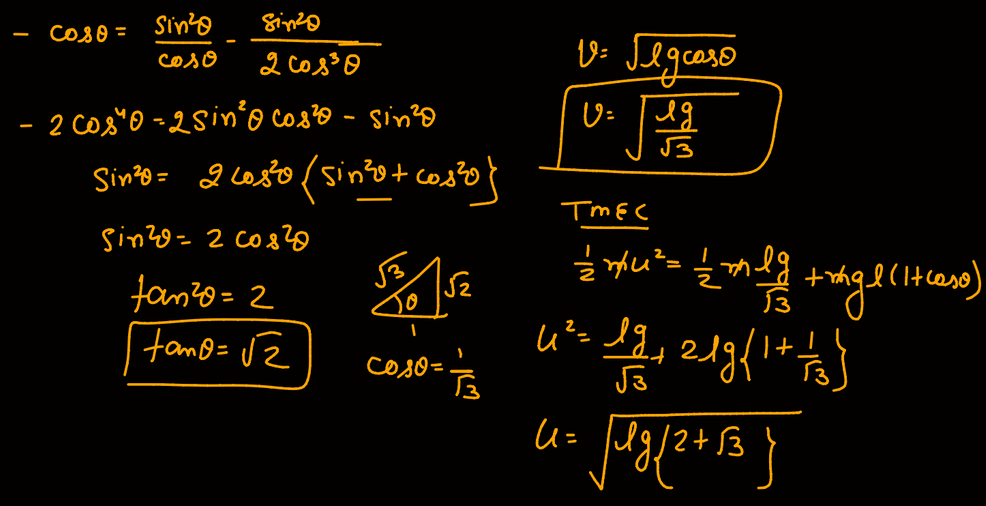 - cosθ = sin²θ/cosθ - sin²θ/2cos³θ
- 2cos⁴θ = 2sin²θ cos²θ - sin²θ
sin²θ = 2cos²θ {sin²θ + cos²θ}
sin²θ = 2cos²θ
tan²θ = 2
tanθ = √2
√3 θ √2
1
cosθ = 1/√3
v = √(lgcosθ)
v = √(lg/√3)
TMEC
1/2 mu² = 1/2 m lg/√3 + mgl(1+cosθ)
u² = lg/√3 + 2lg{1 + 1/√3}
u = √(lg{2+√3})